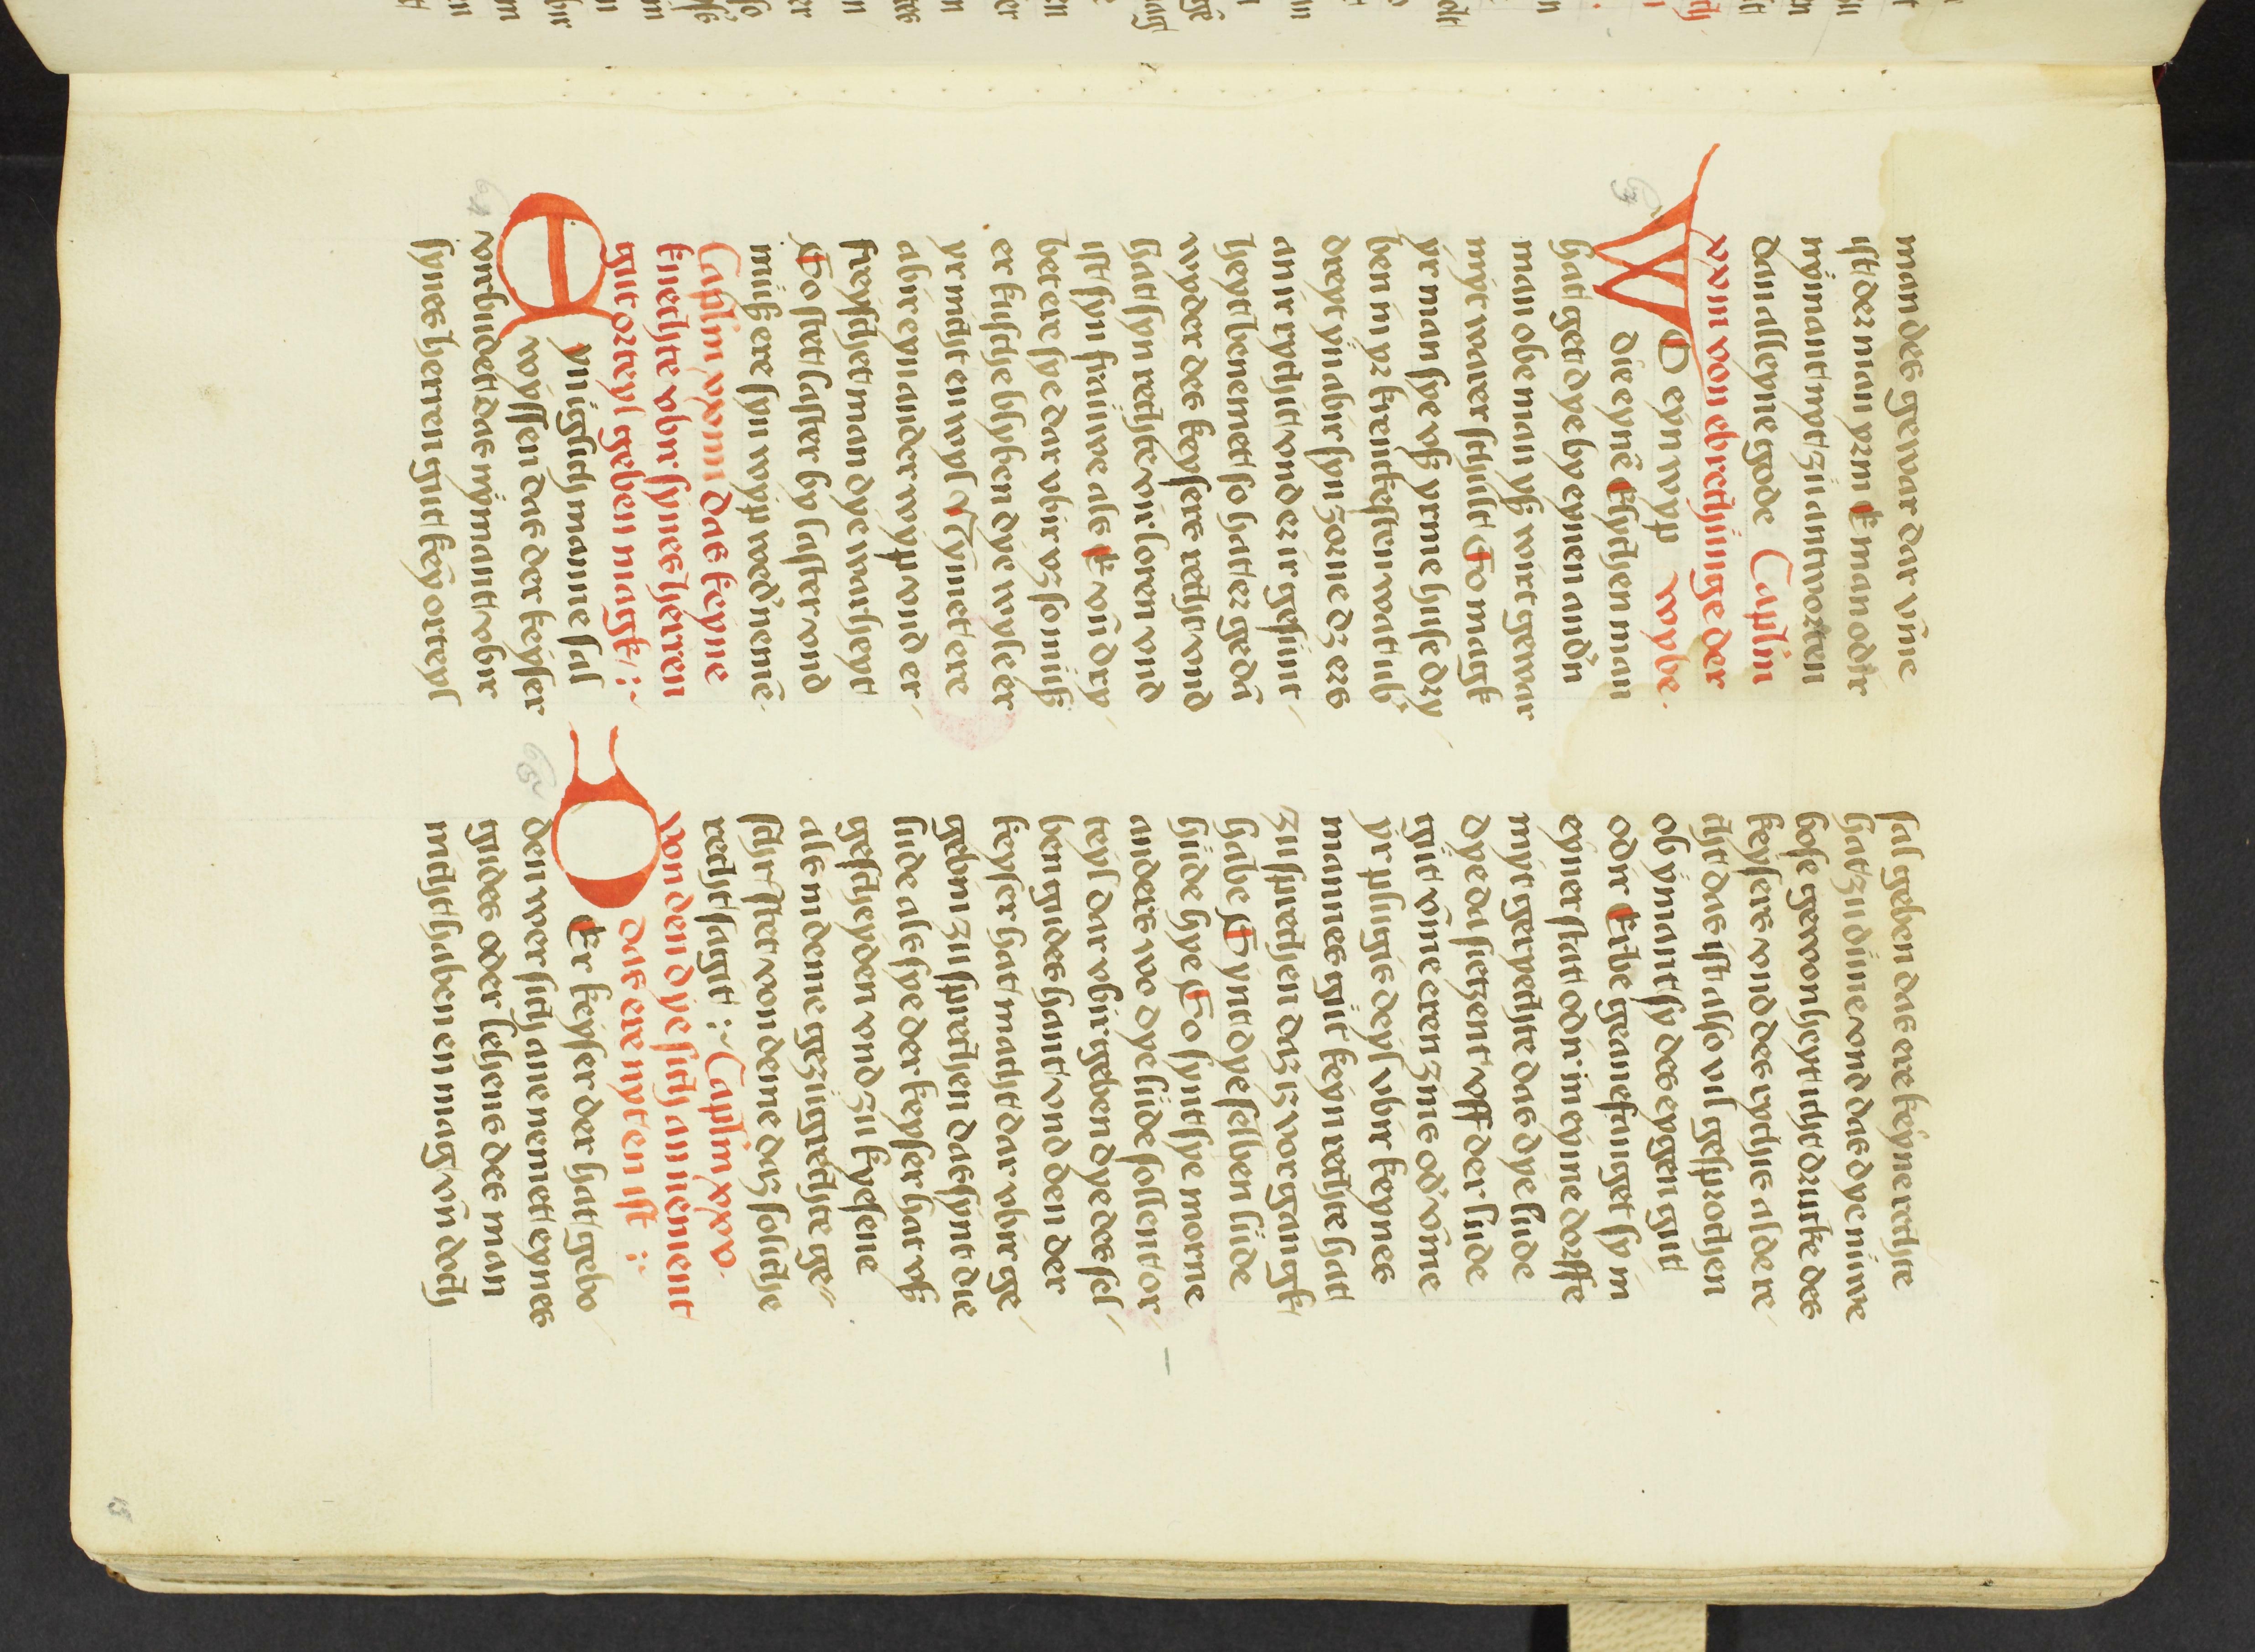 man des gewar dar vm̄e
ist der man yem E man odir
nÿmant nyt zü antworten
dan alleyne gode Caplm̄
xxiii von ebrechünge der
D eyn wyp wybe.
die eynē Elychen man
hat get dye by eynen andn̄
man obe man yß wirt gewar
mÿt warer schult So magk
yr man sye vß yrme huse dry
ben in yr frentkesten wat ub'
dret yn abir syn zorne dz ers
an ir rychitt vond ez ir gesünt
heyt benemet so hat ez gedn̄
wyder des keysers recht vnd
hat syn rechte vorloren vnd
ist syn frauwe als E vn̄ dry
bet ae sye dar vbir vz so müß
er kusche blyben dye wyle er
yr nicht en wyl Nymet ere
abir eyn ander wyp vnd er
freyschet man dye warheyt
So stet laster by laster vnd
müß ere syn wyp wedn̄ nemē
Caplm̄ xxiiii das keyne
knechte obir synes herren
gut orteyl geben magk :~
E ynüglich manne sal
wyssen das der keyser
vorbudet das nÿmant vbir
synes herren gut keÿ orteyl
sal geben das ere keyne rechte
hat zu dune vond das dye nüwe
bose gewonheyt icht drucke des
keysers vnd des rychis aldere
cht das ist also vil gesprochen
ob ÿmant sy des eygen gut
odir Erbe geanefanget sy in
eyner stat odir in eyme dorffe
mÿt gerychte das dye lude
dÿe da sitzent vff der lude
gut vm̄e eren zins od' vme
yr pflugis deyl vbir keynes
mannes gut keyn rechte hatt
zusprechen daz iz vorgangk
habe Synt dye selben lude
hüde hye So synt sye morne
anders wo dye lude sollent or
teyl dar vbir geben dye des sel
ben gudes hant vnd den der
keyser hat macht dar vbir ge
gebn zu sprechen das synt die
lude als sye der keyser hat vß
gescheyden vnd zu kyesene
als in deme gezügrechte ge
schr stet von deme daz soliche
recht sagit :~ Caplm̄ xxv.
von den dye sich annement
das ere nyt en ist :~
D Er keyser der hat gebo
den wer sich anenemet eynes
gudes oder lehens des man
nicht haben en mag vn̄ doch